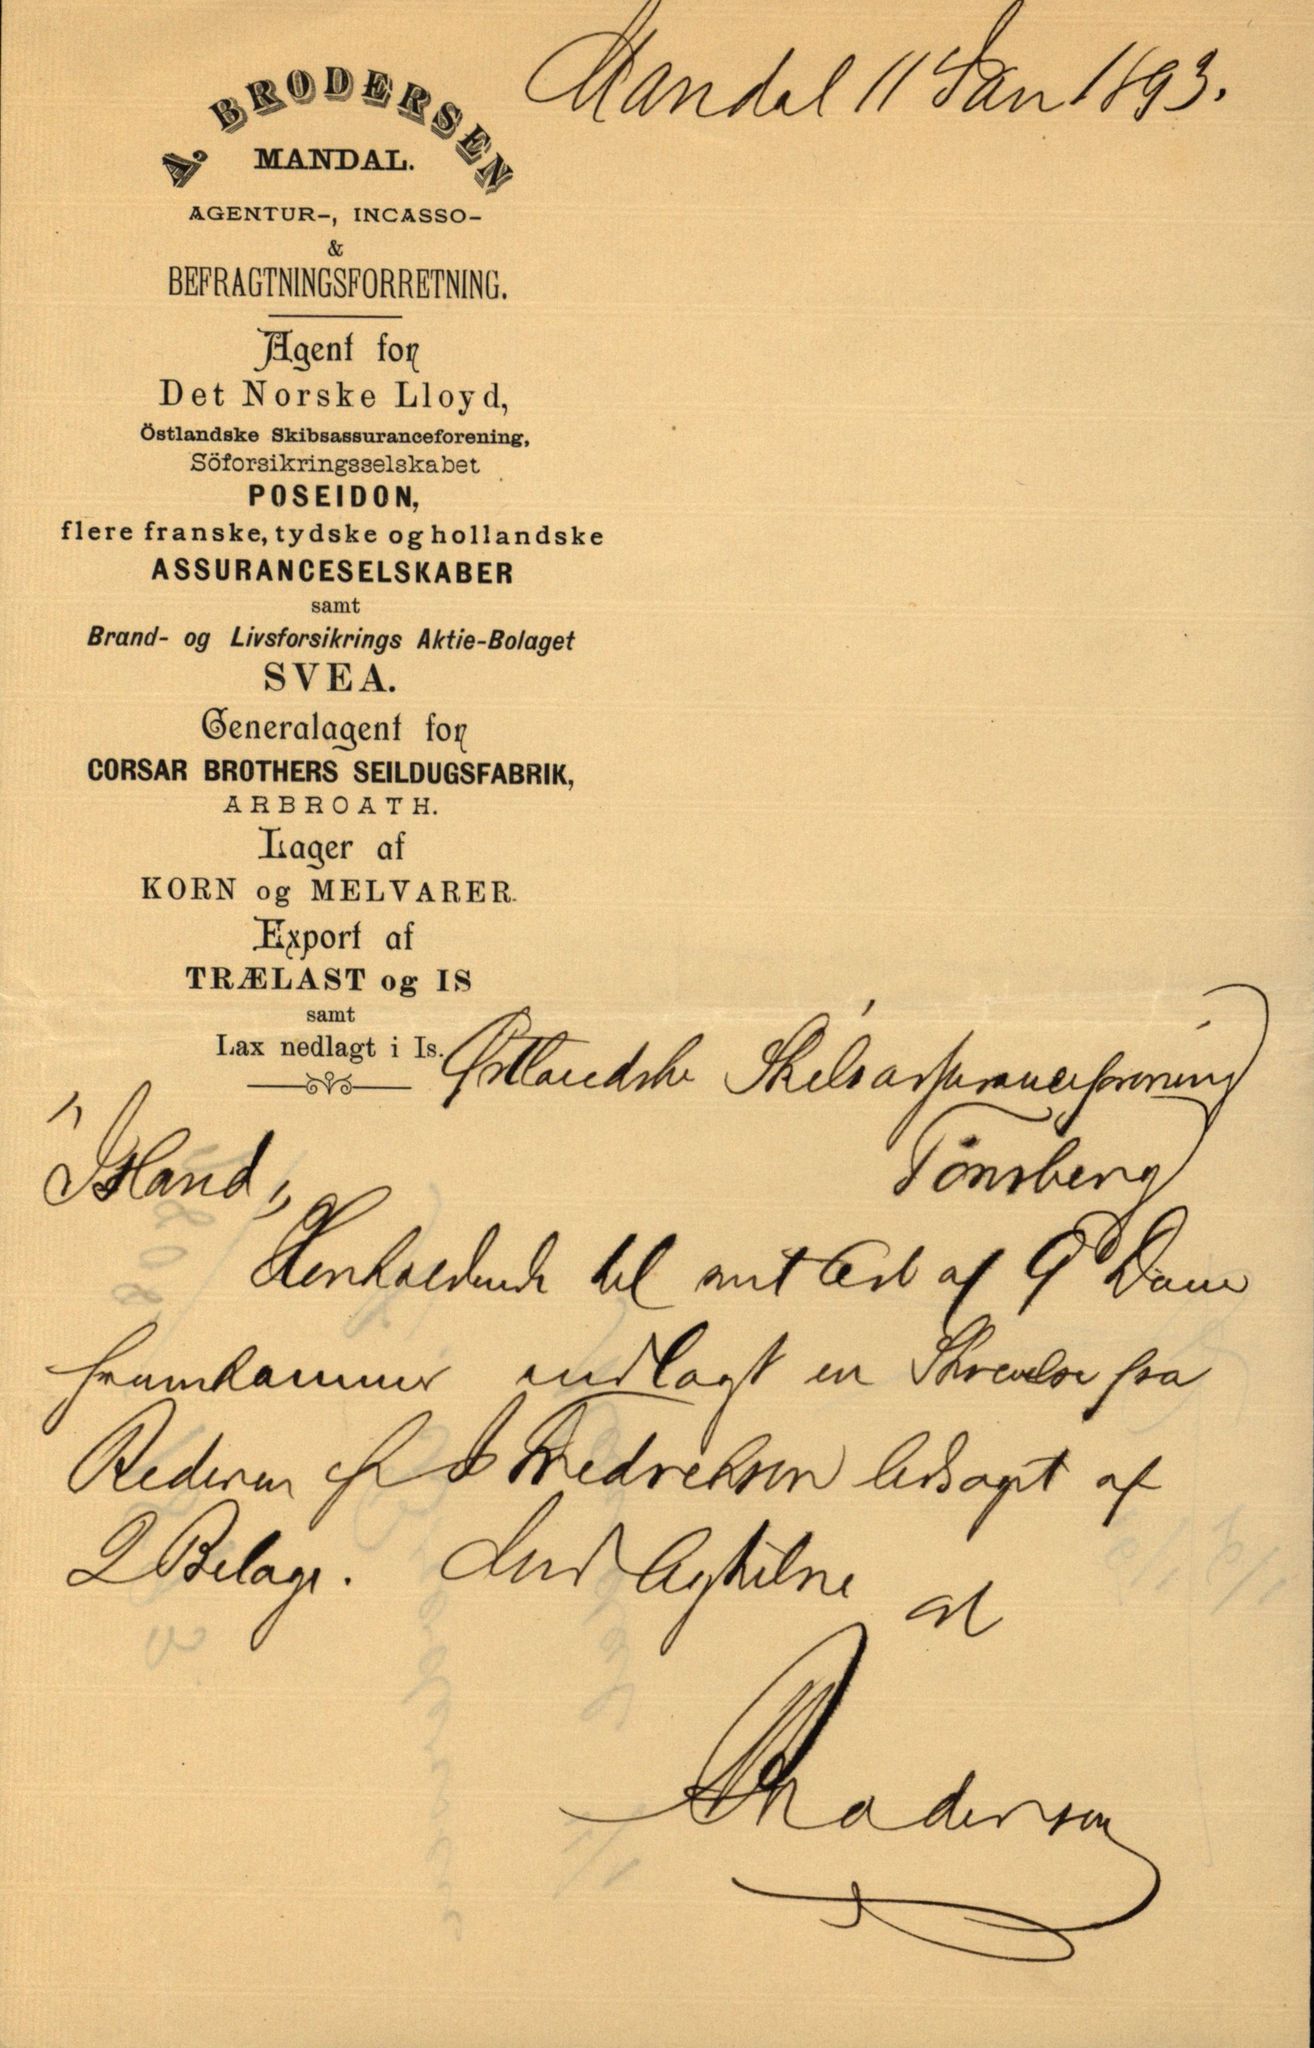 Mandal 11 Jan 1893.
A. BRODERSEN
MANDAL.
AGENTUR-, INCASSO-
&
BEFRAGTNINGSFORRETNING.
Agent for
Det Norske Lloyd,
Östlandske Skibsassuranceforening,
Söforsikringsselskabet
POSEIDON,
flere franske, tydske og hollandske
ASSURANCESELSKABER
samt
Brand- og Livsforsikrings Aktie-Bolaget
SVEA.
Generalagent for
CORSAR BROTHERS SEILDUGSFABRIK,
ARBROATH.
Lager af
KORN og MELVARER.
Export af
TRÆLAST og IS
samt
Lax nedlagt i Is.
Østlandske Skibsassuranceforening
Tönsberg
"Island"
Henholdende til mit af 9 Dennes
fremkommer indlagt en Skrivelse fra
Rederen J Fredriksen ledsaget af
2 Belage. Med Agtelse
A Brodersen